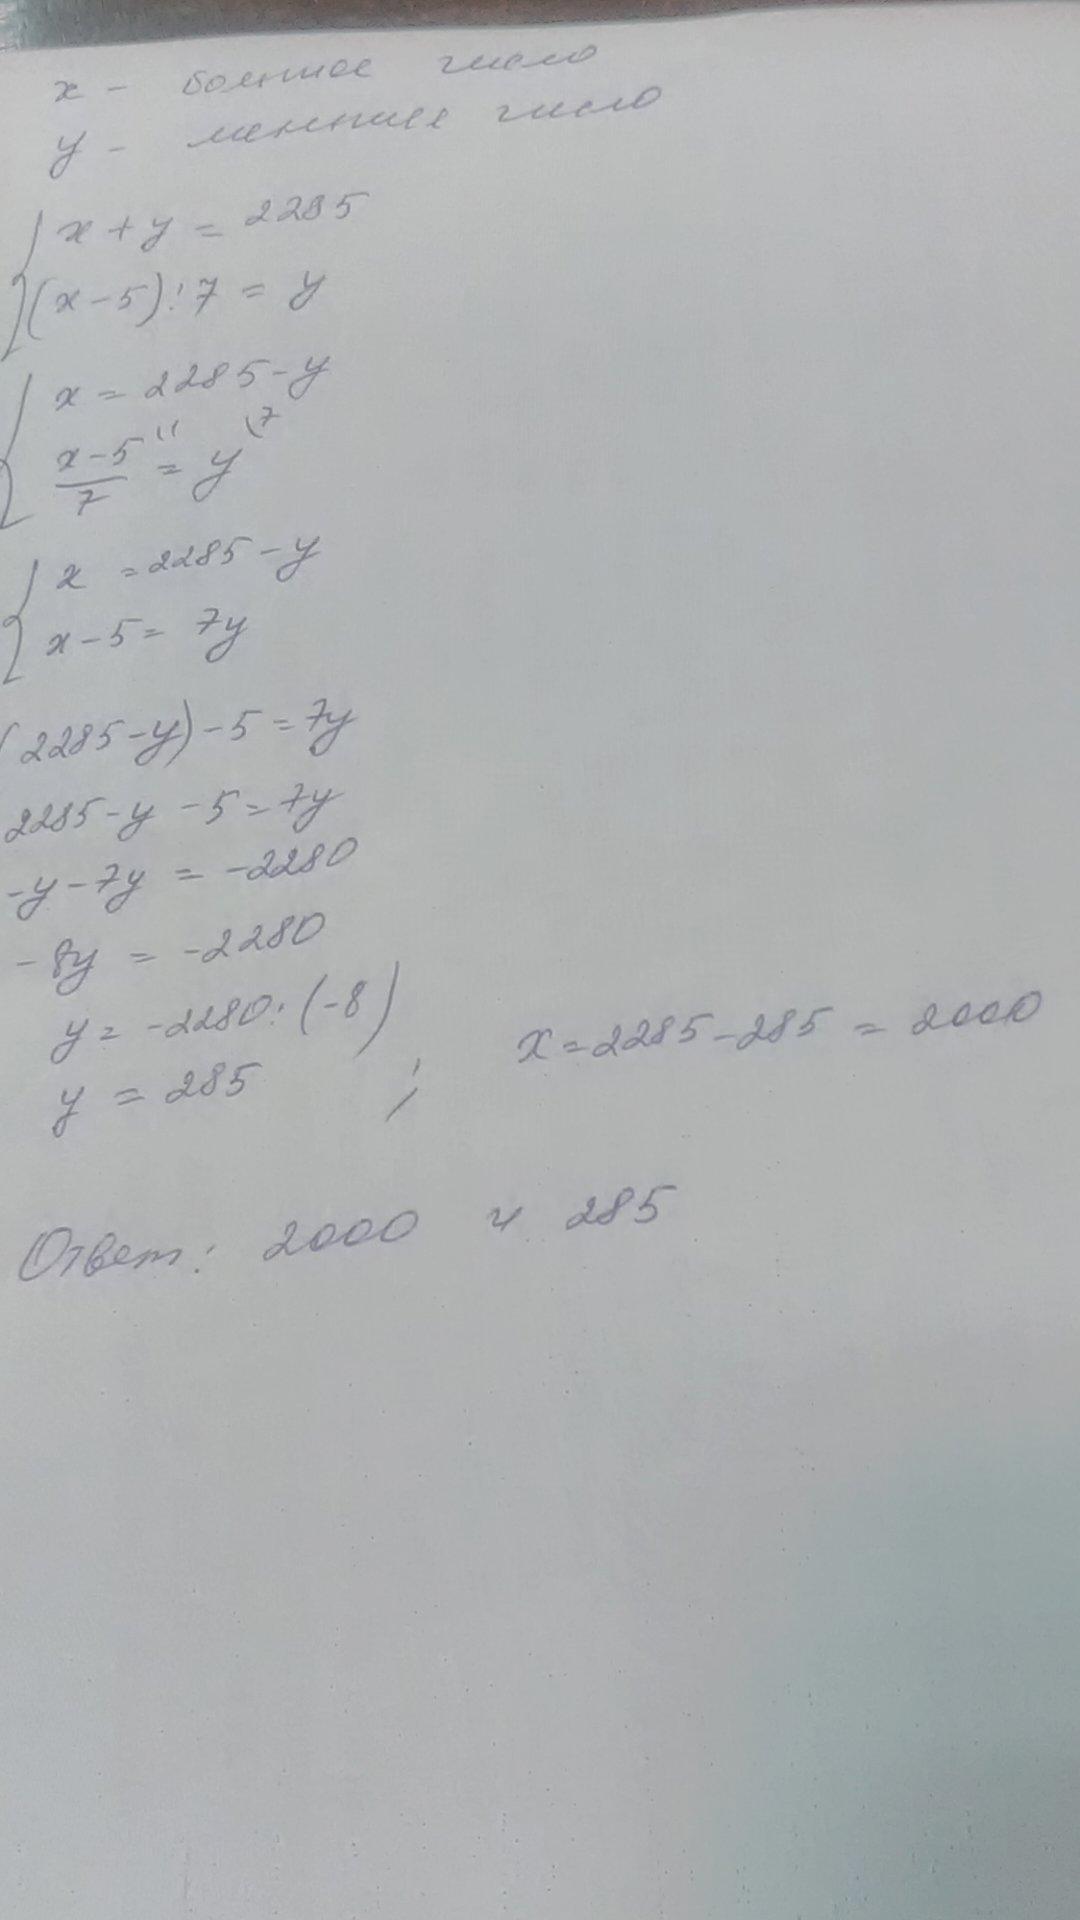 x - большее число
y - меньшее число
x + y = 2285
(x - 5) : 7 = y
x = 2285 - y
x - 5 (1 = y (7
7
x = 2285 - y
x - 5 = 7y
(2285 - y) - 5 = 7y
2285 - y - 5 = 7y
-y - 7y = -2280
-8y = -2280
y = -2280 : (-8)
y = 285 ; x = 2285 - 285 = 2000
Ответ: 2000 и 285